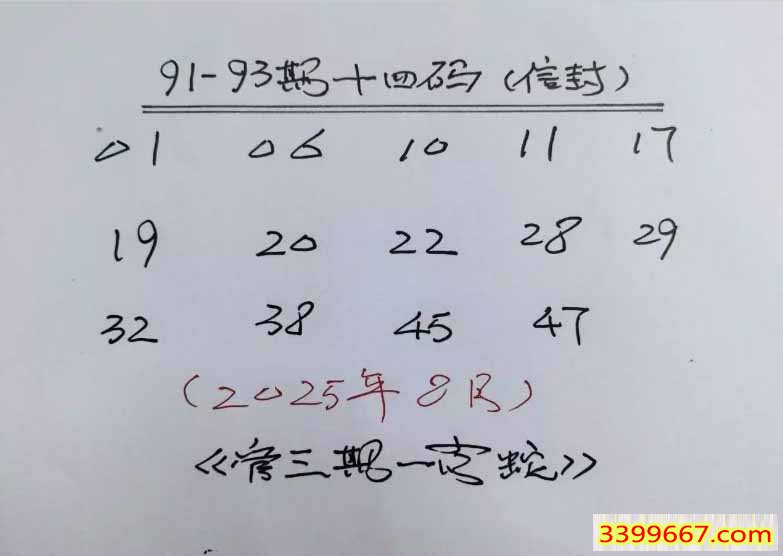 91-93期十四码(信封)
01 06 10 11 17
19 20 22 28 29
32 38 45 47
(2025年8月)
《管三期一字蛇》
3399667.com